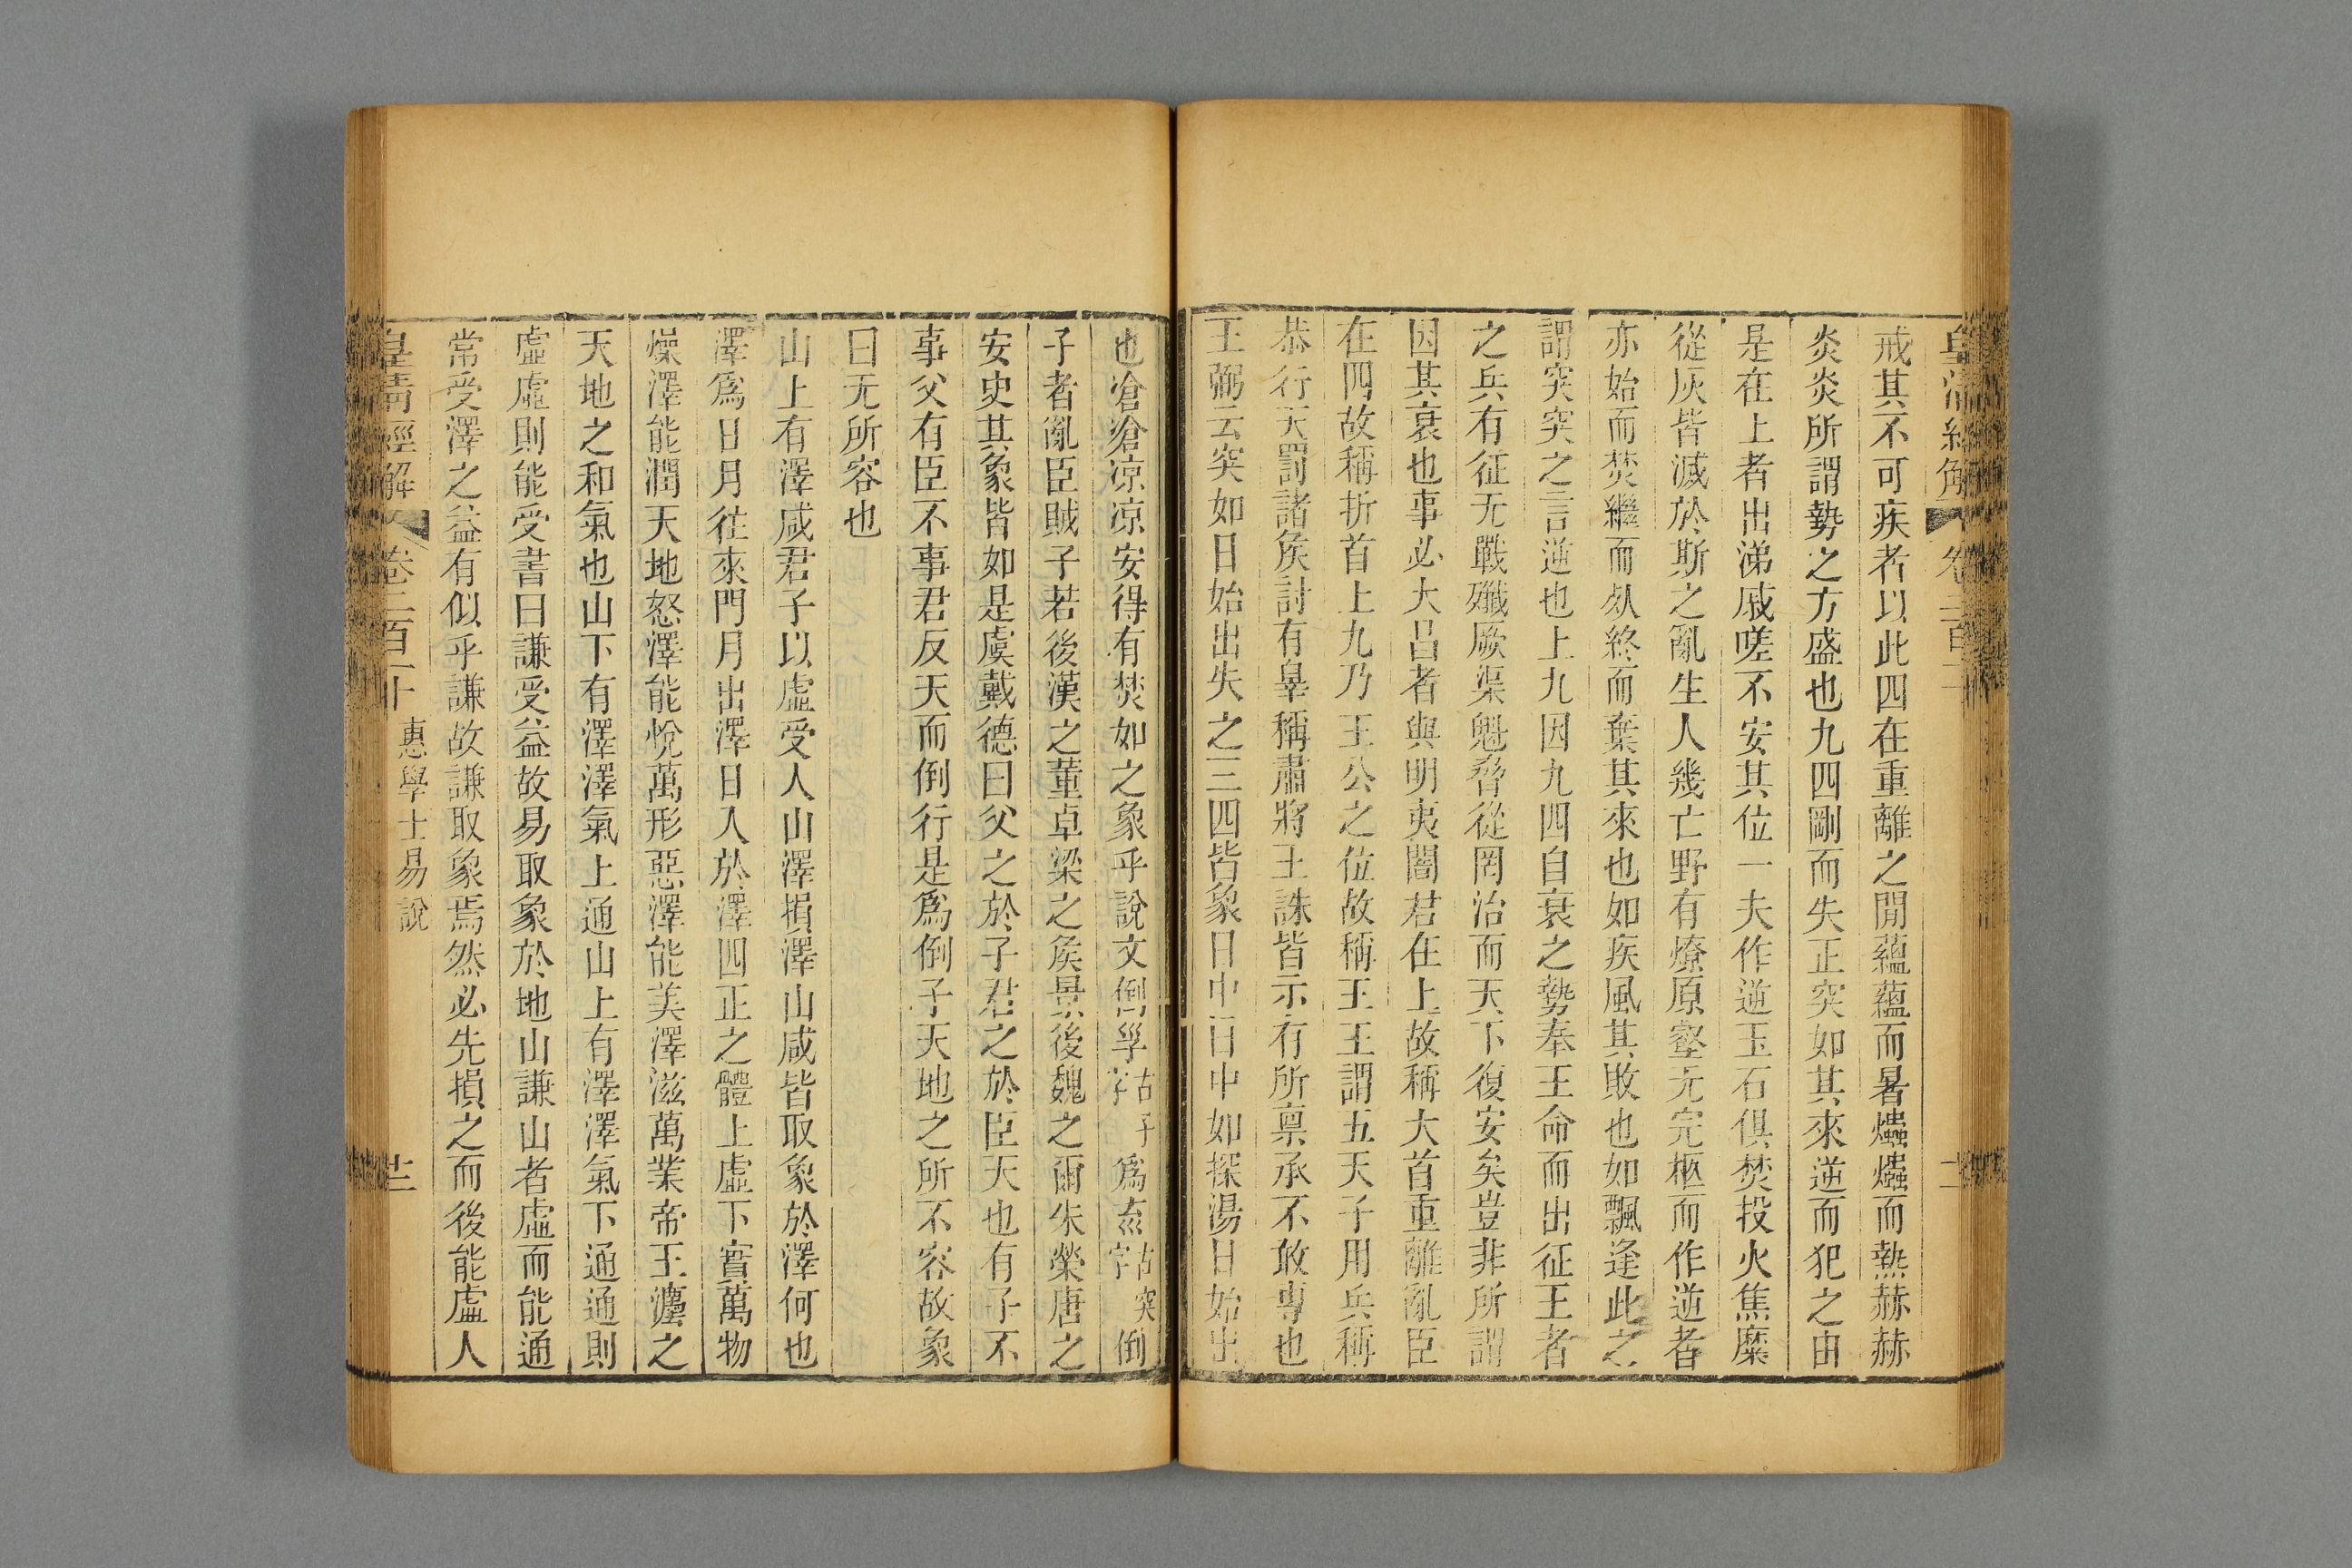 戒其不可疾者以此四在重離之閒蘊蘊而暑爞爞而熱赫赫
炎炎所謂勢之方盛也九四剛而失正突如其來逆而犯之由
是在上者出涕戚嗟不安其位一夫作逆玉石俱焚投火焦糜
從灰皆滅於斯之亂生人幾亡野有燎原壑无完柩而作逆者
亦始而焚繼而㷊終而棄其來也如疾風其敗也如飄逢此之
謂突突之言逆也上九因九四自衰之勢奉王命而出征王者
之兵有征无戰殲厥渠魁脅從罔治而天下復安矣豈非所謂
因其衰也事必大昌者與明夷闇君在上故稱大首重離亂臣
在四故稱折首上九乃王公之位故稱王王謂五天子用兵稱
恭行天罰諸矦討有辠稱肅將王誅皆示有所禀承不敢專也
王弼云突如日始出失之三四皆象日中日中如探湯日始出
也滄滄凉凉安得有焚如之象乎說文倒𡥀古文孚子爲𠫓古文突倒
子者亂臣賊子若後漢之董卓梁之矦景後魏之爾朱榮唐之
安史其象皆如是虞戴德曰父之於子君之於臣天也有子不
事父有臣不事君反天而倒行是爲倒子天地之所不容故象
曰无所容也
山上有澤咸君子以虛受人山澤損澤山咸皆取象於澤何也
澤爲日月往來門月出澤日入於澤四正之體上虛下實萬物
燥澤能潤天地怒澤能悅萬形惡澤能美澤滋萬業帝王灋之
天地之和氣也山下有澤澤氣上通山上有澤澤氣下通通則
虛虛則能受書曰謙受益故易取象於地山謙山者虛而能通
常受澤之益有似乎謙故謙取象焉然必先損之而後能虛人
皇清經解 卷二百一十 惠學士易說 𠀎